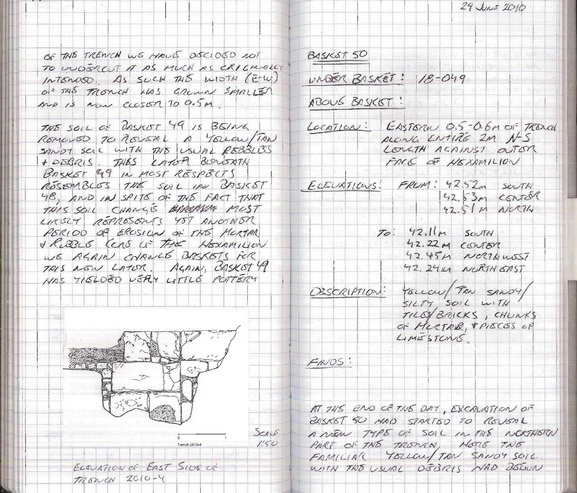 OF THE TRENCH WE HAVE DECIDED NOT
TO UNDERCUT IT AS MUCH AS ORIGINALLY
INTENDED. AS SUCH THE WIDTH (E-W)
OF THE TRENCH HAS GROWN SMALLER
AND IS NOW CLOSER TO 0.5m.
THE SOIL OF BASKET 49 IS BEING
REMOVED TO REVEAL A YELLOW/TAN
SANDY SOIL WITH THE USUAL PEBBLES
& DEBRIS. THIS LAYER BENEATH
BASKET 49 IN MOST RESPECTS
RESEMBLES THE SOIL IN BASKET
48, AND IN SPITE OF THE FACT THAT
THIS SOIL CHANGE MOST
LIKELY REPRESENTS YET ANOTHER
PERIOD OF EROSION OF THE MORTAR
& RUBBLE CORE OF THE HEXAMILION
WE AGAIN CHANGE BASKETS FOR
THIS NEW LAYER. AGAIN, BASKET 49
HAS YIELDED VERY LITTLE POTTERY
Trench 2010-4
SCALE
1:50
ELEVATION OF EAST SIDE OF
TRENCH 2010-4
29 JUNE 2010
BASKET 50
UNDER BASKET: 18-049
ABOVE BASKET:
LOCATION: EASTERN 0.5-0.6m OF TRENCH
ALONG ENTIRE 2m N-S
LENGTH AGAINST OUTER
FACE OF HEXAMILION
ELEVATIONS: FROM: 42.52m SOUTH
42.53m CENTER
42.51m NORTH
TO: 42.11m SOUTH
42.22m CENTER
42.45m NORTHWEST
42.24m NORTHEAST
DESCRIPTION: YELLOW/TAN SANDY/
SILTY SOIL WITH
TILES/BRICKS, CHUNKS
OF MORTAR, & PIECES OF
LIMESTONE.
FINDS:
AT THE END OF THE DAY, EXCAVATION OF
BASKET 50 HAD STARTED TO REVEAL
A NEW TYPE OF SOIL IN THE NORTHERN
PART OF THE TRENCH. HERE THE
FAMILIAR YELLOW/TAN SANDY SOIL
WITH THE USUAL DEBRIS HAD BEGUN